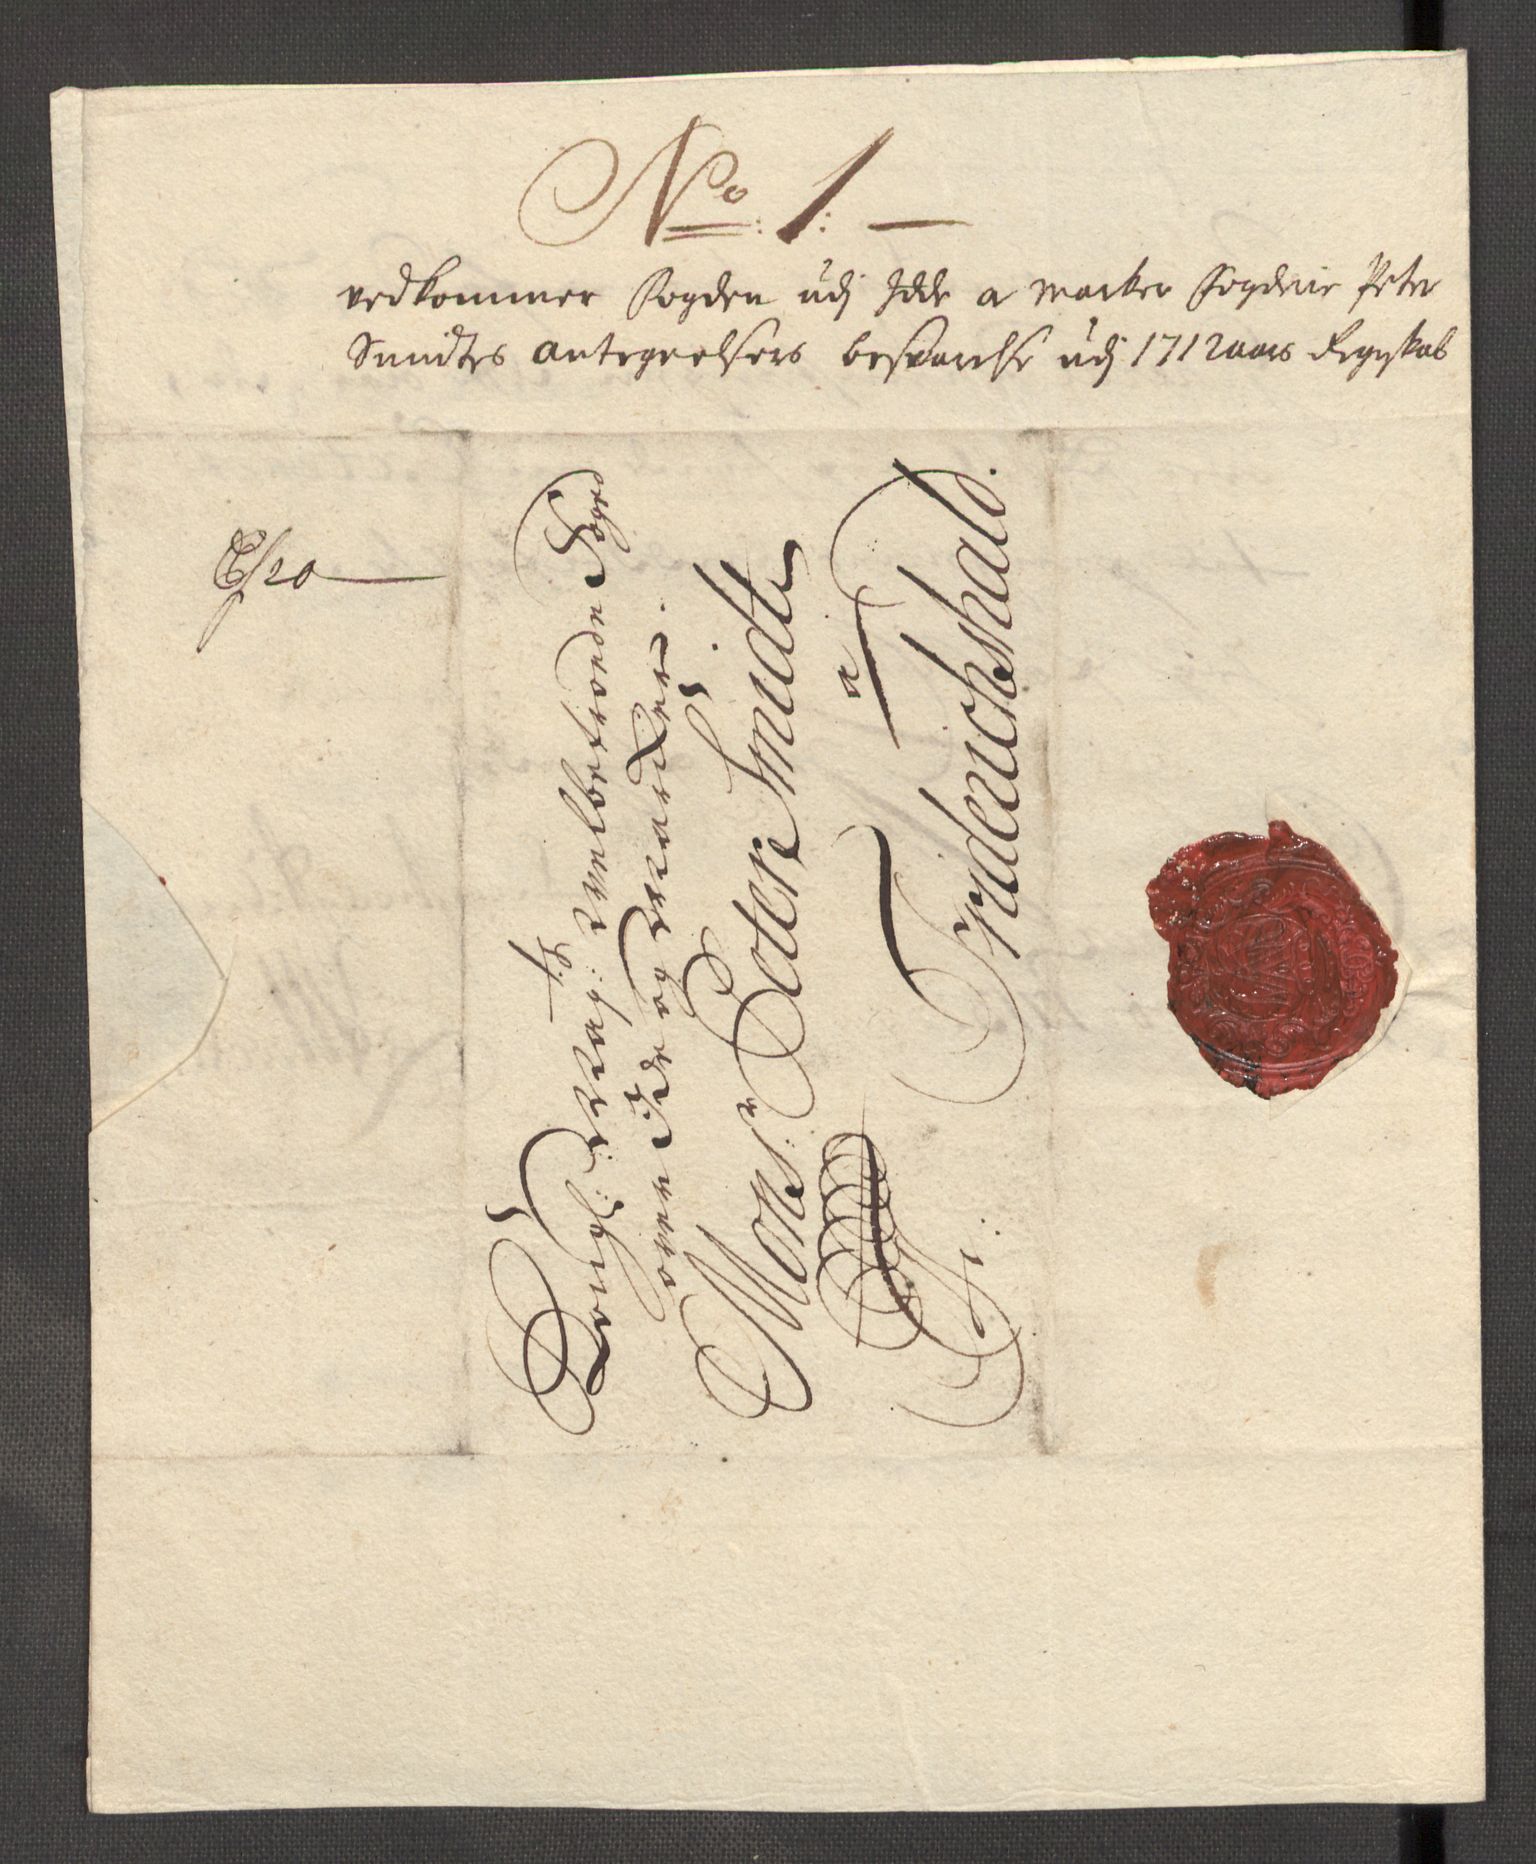 No: 1: —
vedkommer Fogden udj Idde a Marker Fogderie Peter
Smidtes antegnelsers besvarelse udj 1712 aars Regnskab
Kongl: Mayts: velbetroede Foged
over Idde og Marker.
Monsr: Peter Smidt
a
Friderichshald.